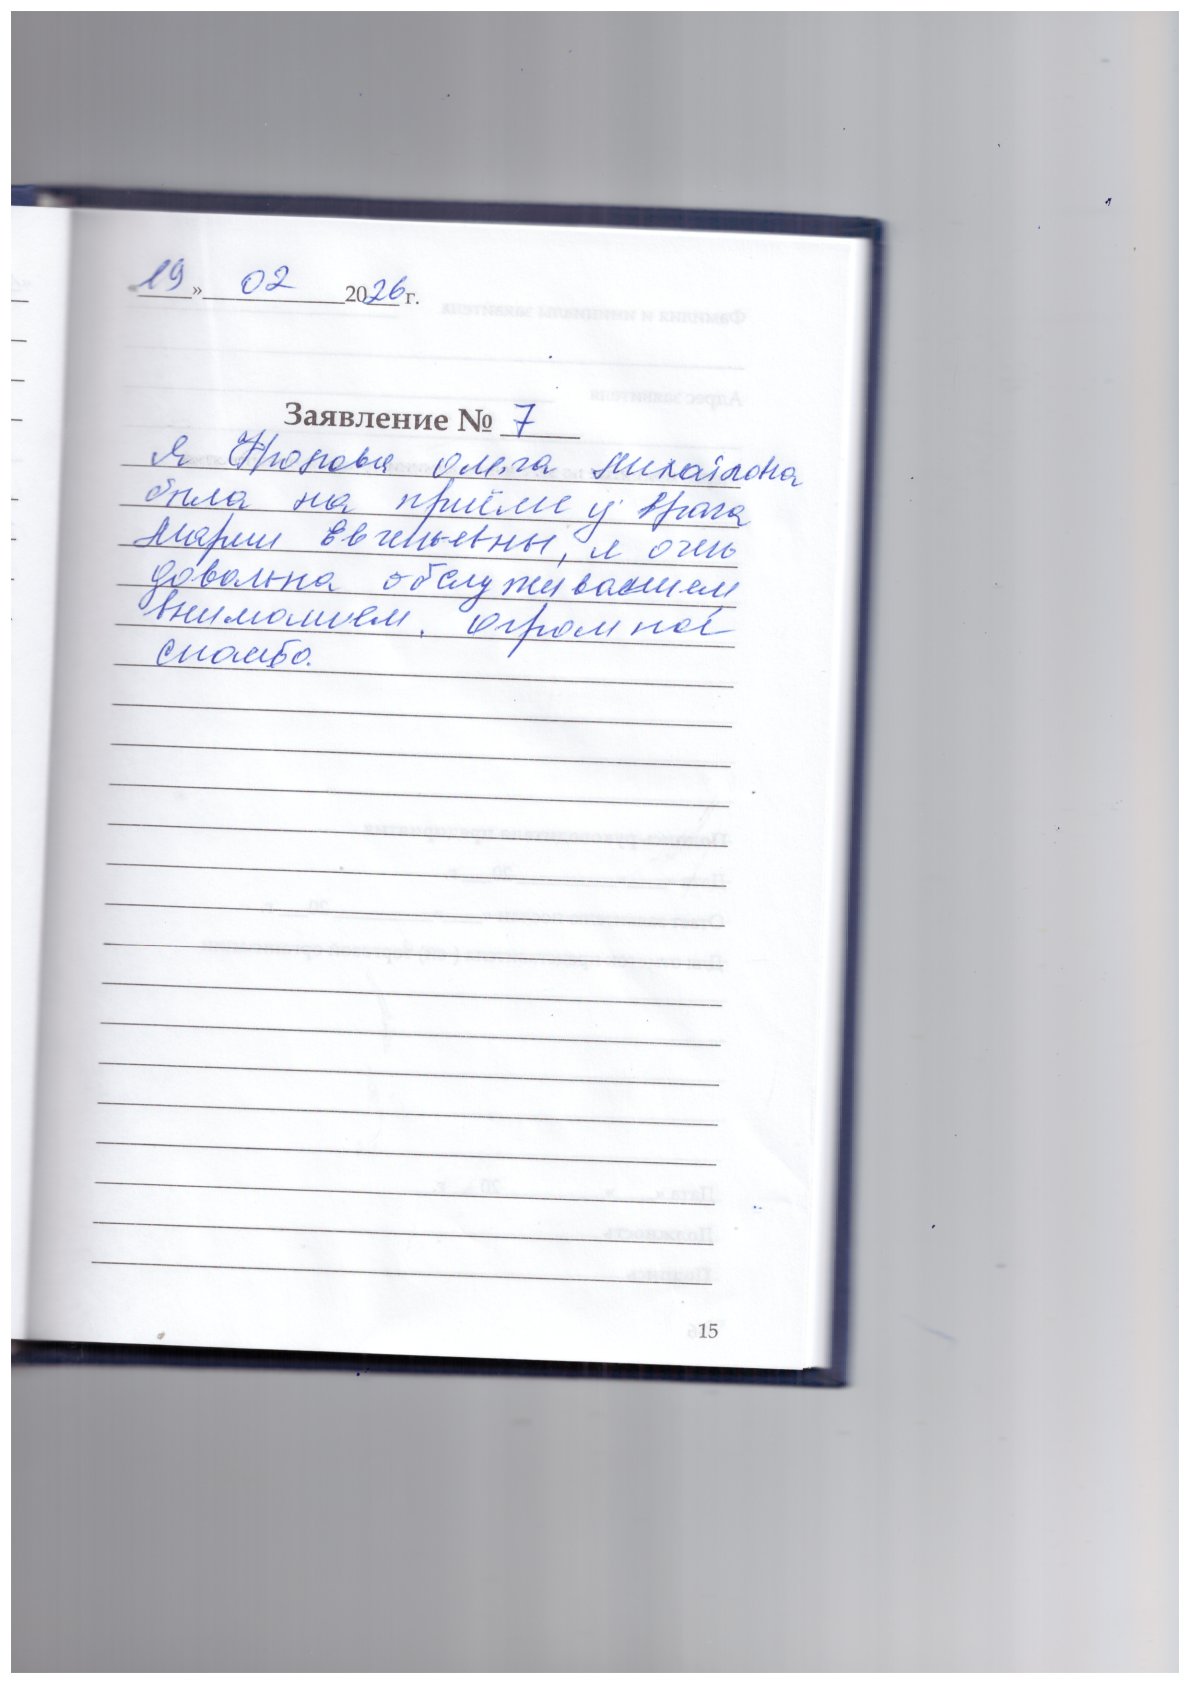 «19» 02 2026 г.
Заявление № 7
Я Ольга Михайловна
была на приёме у врача
Марии Евгеньевны, я очень
довольна обслуживанием
вниманием. огромное
спасибо.
15